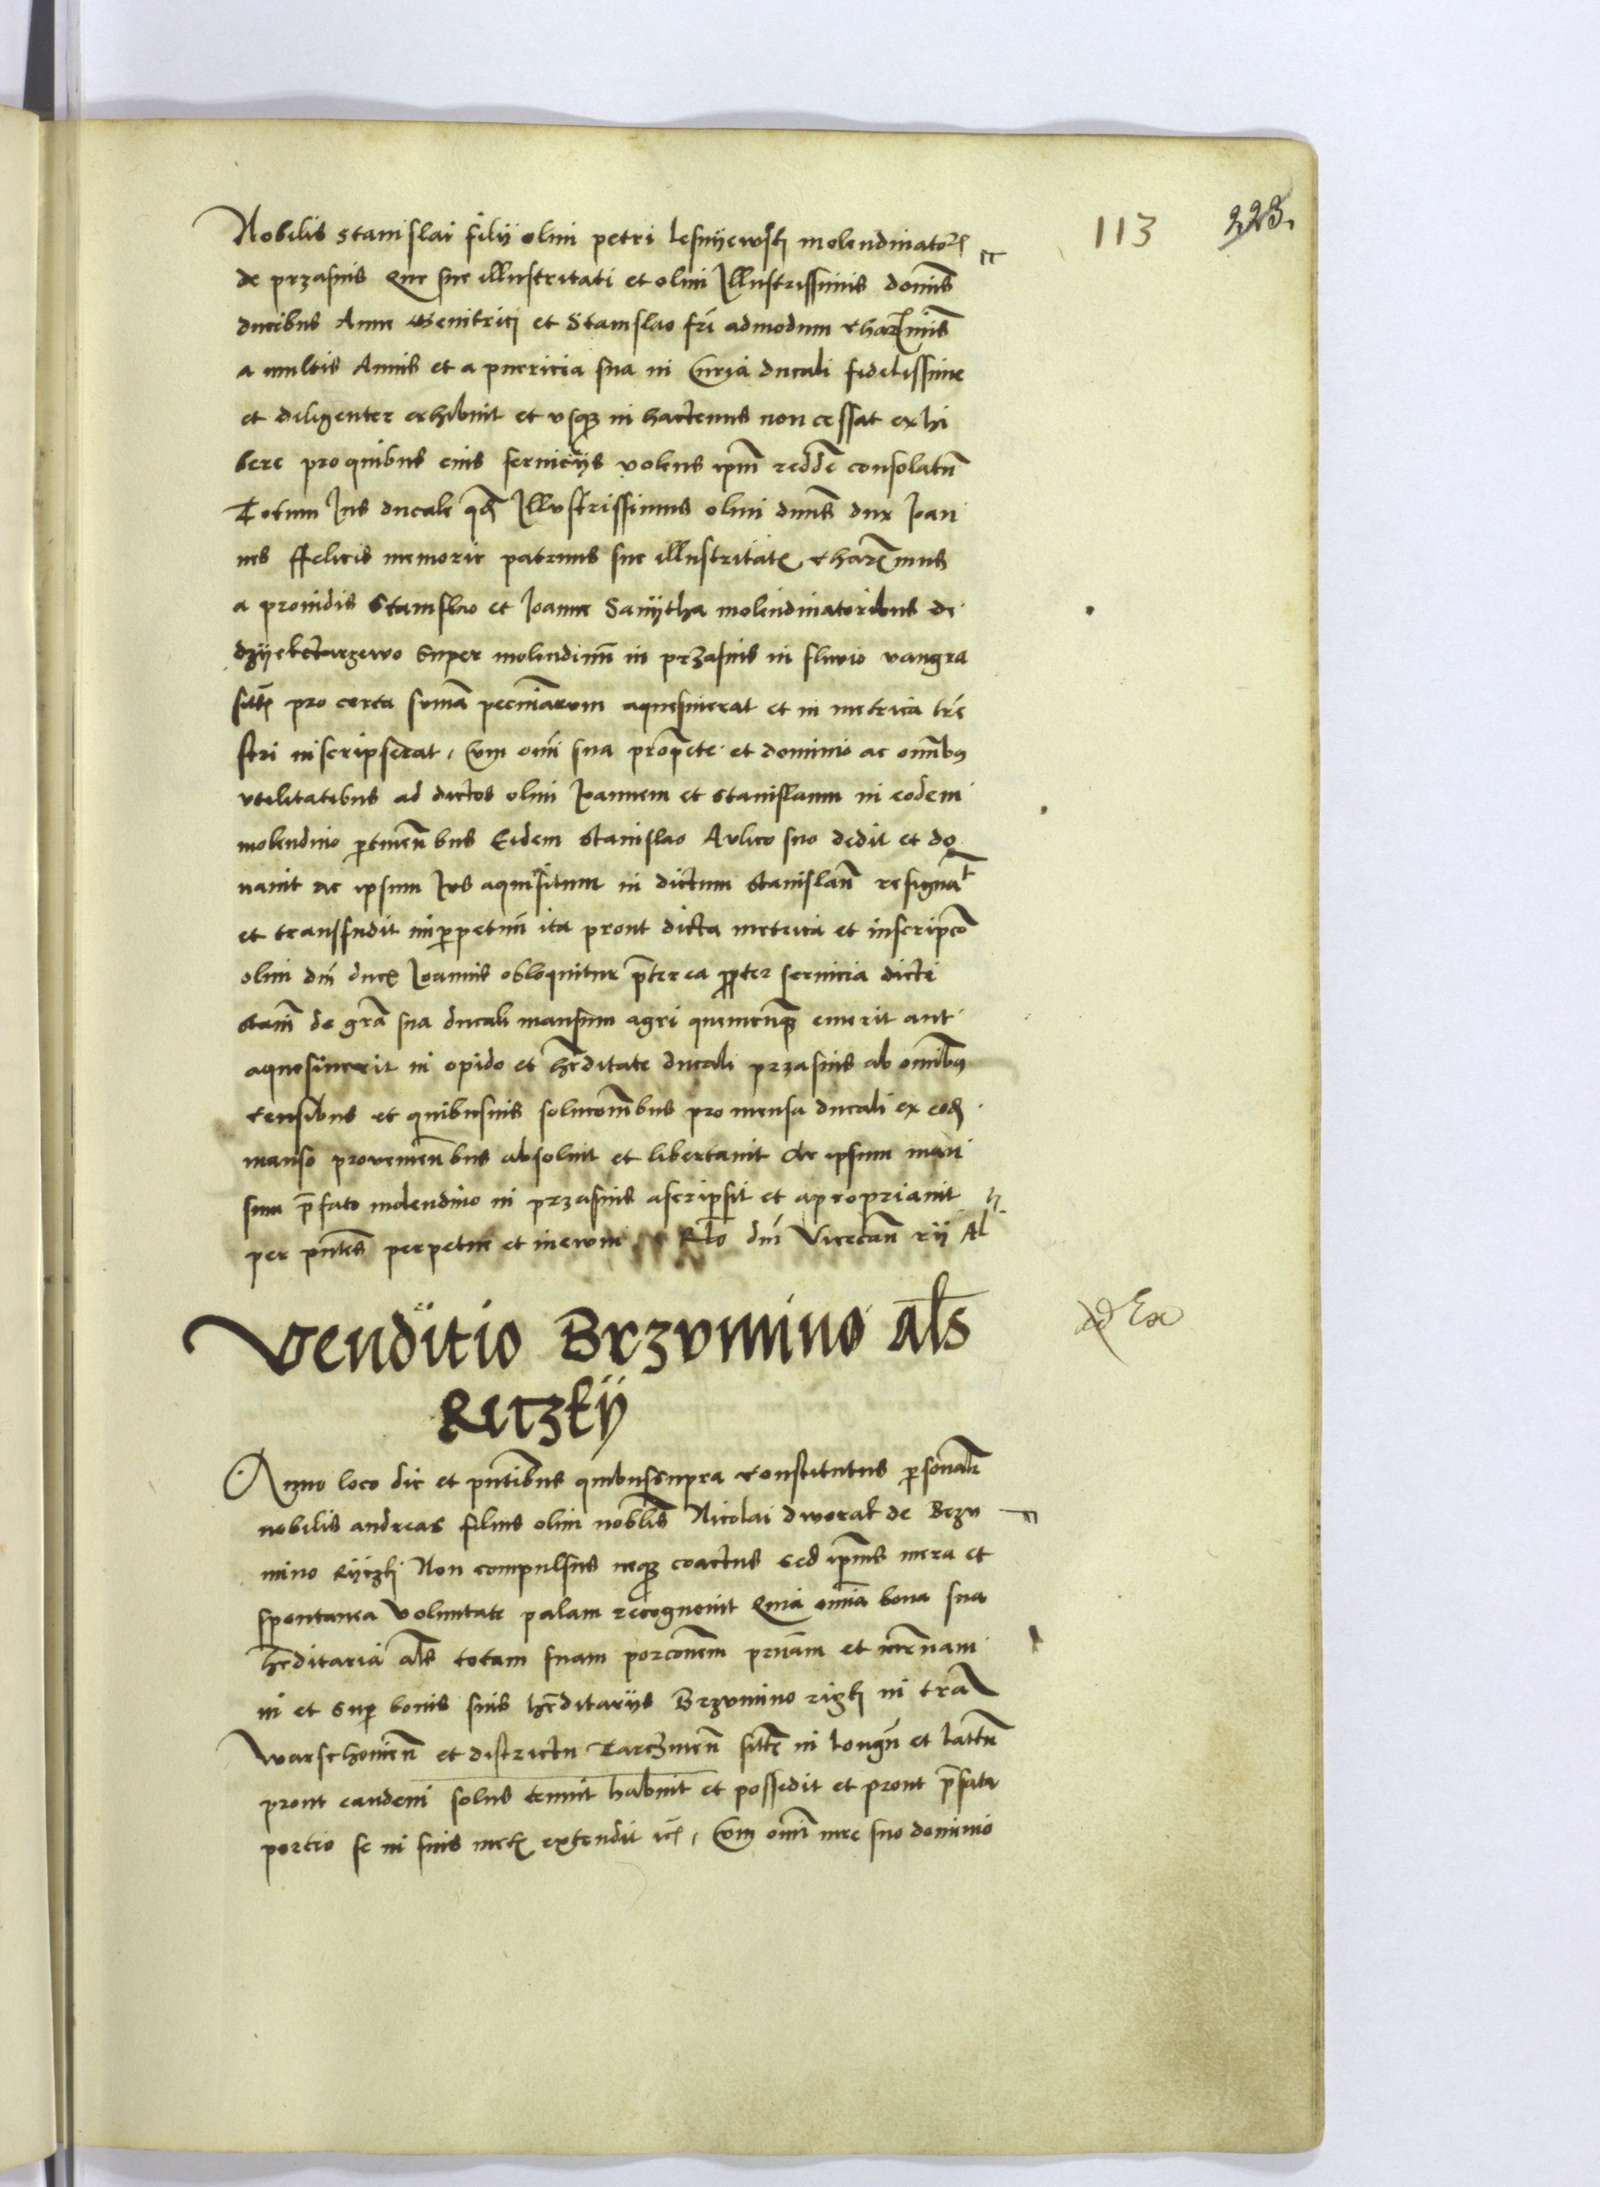 113 223.
Nobilis stanislai filij olim petri lesnyewsky molendinatoris
de przasnis Que sue illustritati et olim Illustrissimis dominis
ducibus Anne Genitrici et Stanislao fri admodum charissimis
a multis Annis et a puericia sua in Curia ducali fidelissime
et diligenter exhibuit et usque in hactenus non cessat exhi
bere pro quibus eius serviciis volens ipm redde consolatum
Totum Ius ducale quod Illustrissimus olim dnus dux Ioan
nes ffelicis memorie patruus sue illustritatis charissimus
a providis Stanislao et Ioanne Sanytha molendinatoribus de
dzyektarzewo Super molendinum in przasnis in fluvio vangra
situm pro certa suma pecuniarum aquesiuerat et in metrica tre
stri inscripserat, Cum omi sua proprete et dominio ac omnibus
utilitatibus ad dictos olim Ioannem et stanislaum in eodem
molendino ptinentibus Eidem Stanislao Aulico suo dedit et do
navit ac ipsum Ius aquisitum in dictum stanislaum resignat
et transfudit in perpetuum ita prout dicta metrica et inscripcio
olim dni ducis Ioannis obloquitur preterea propter servicia dicti
stani de gra sua ducali mansum agri quemcunque emerit aut
aquesiverit in opido et hereditate ducali przasnis ab omnibus
censibus et quibusuis solucionibus pro mensa ducali ex eodem
manso provenientibus absoluit et libertauit Ac ipsum man
sum prefato molendino in przasnis ascripsit et apropriauit
per pntes perpetue et in evum Rlo dni Vicecan rij
Venditio Brzumino als
Ritzky
ad Ex
Anno loco die et pntibus quibus supra constitutus personaliter
nobilis andreas filius olim nobilis Nicolai dworak de Brzu
mino Ryczki Non compulsus neque coactus sed ipsius mera et
spontanea voluntate palam recognovit Quia omnia bona sua
hereditaria als totam suam porcionem prnam et mrnam
in et super bonis suis hereditariis Brzumino riczki in terra
warschouien et districtu Tarczinen sitam in longum et latum
prout eandem solus tenuit habuit et possedit et prout prefata
portio se in suis metis extendit etc, Cum omni iure suo dominio